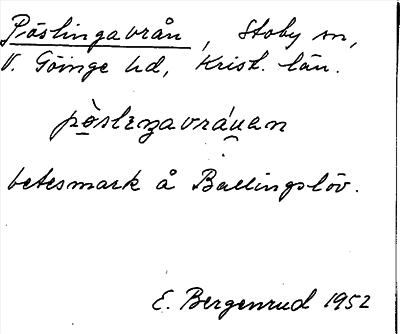 Päslingavrån, Stoby sn,
V. Göinge hd, Krist. län.
betesmark å Ballingslöv.
E. Bergenrud 1952